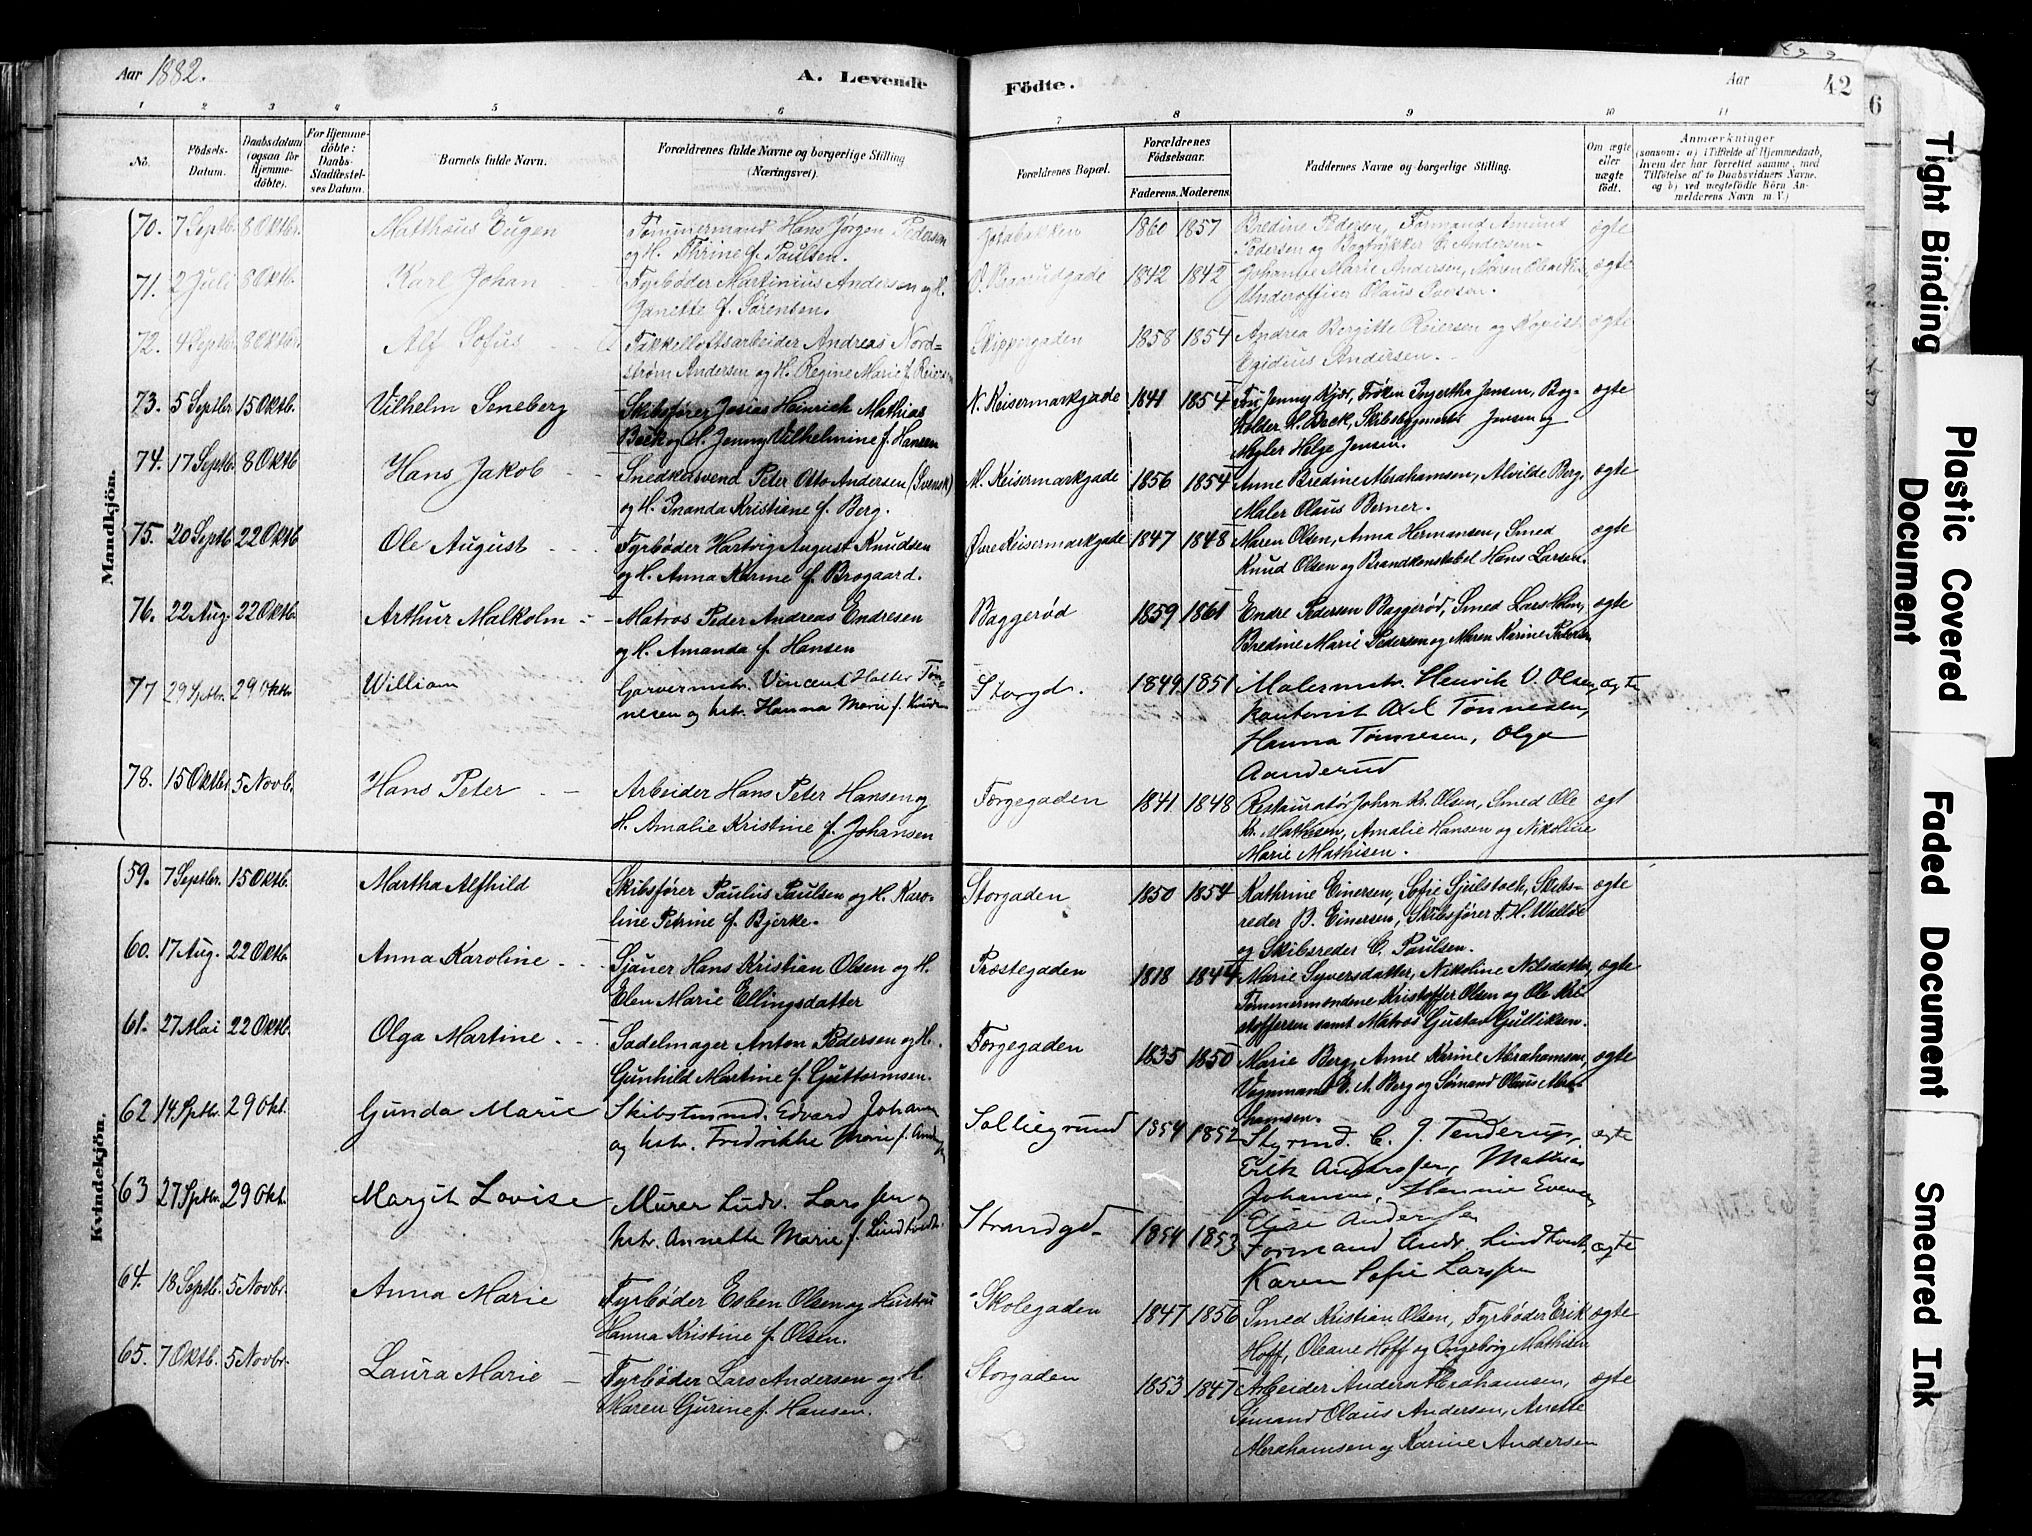 Aar 1882.
A. Levende
Födte.
Aar
42
6
1 2 3 4 5 6 7 8 9 10 11
No.
Födsels-
Datum.
Daabsdatum
(ogsaa for
Hjemme-
döbte).
For Hjemme-
döbte:
Daabs-
Stadfæstel-
ses Datum.
Barnets fulde Navn.
Forældrenes fulde Navne og borgerlige Stilling
(Næringsvei).
Forældrenes Bopæl.
Forældrenes
Födselsaar.
Faderens. Moderens.
Faddernes Navne og borgerlige Stilling.
Om ægte
eller
uægte
födt.
Anmærkninger
(saasom: a) i Tilfælde af Hjemmedaab,
hvem der har forrettet samme, med
Tilföielse af to Daabsvidners Navne.
og b) ved uegtefödte Börn An-
melderens Navn m. V.)
Mandkjön.
70. 7 Septbr. 8 Oktbr. Matthæus Eugen Tømmermand Hans Jørgen Pedersen 1860 1857 Bredine Pedersen, Formand Amund ægte
og H. Thrine f. Paulsen. Pedersen og Bogtrykker C. Andersen
71. 2 Juli 8 Oktbr. Karl Johan Fyrbøder Martinius Andersen og H. 1842 1842 Johanne Marie Andersen, Maren ægte
Janette f. Sørensen. Underofficer Olaus Iversen.
72. 4 Septbr 8 Oktbr. Alf Sofus Takkelloftsarbeider Andreas Nord- Skippergaden 1858 1854 Andrea Bergitte Reiersen og Kopist ægte
strøm Andersen og H. Regine Marie f. Reiersen Egidius Andersen.
73. 5 Septbr 15 Oktb. Vilhelm Seneberg Skibsfører Josias Heinrich Mathias N. Keisermarkgade 1841 1854 Fru Jenny Kjær, Frøken Ingertha Jensen, Bog- ægte
Boek og H. Jenny Vilhelmine f. Hansen holder H. Boek, Skibsbygmester Jensen og
Mægler Helge Jensen.
74. 17 Septb. 8 Oktb Hans Jakob Snedkersvend Peter Otto Andersen (Svensk) N. Keisermarkgade 1856 1854 Anne Bredine Abrahamsen, Alvilde Berg, ægte
og H. Inanda Kristiane f. Berg. Maler Olaus Berner.
75. 20 Septb 22 Oktb Ole August Fyrbøder Hartvig August Knudsen Øvre Keisermarkgade 1847 1848 Maren Olsen, Anna Hermansen, Smed ægte
og H. Anna Karine f. Brogaard. Knud Olsen og Brandkonstabel Hans Larsen.
76. 22 Aug. 22 Oktb. Arthur Malkolm Matros Peder Andreas Endresen Baggerød 1859 1861 Endre Pedersen Baggerød, Smed Lars Holm, ægte
og H. Amanda f. Hansen Bredine Marie Pedersen og Maren Karine Petersen
77 29 Sptbr. 29 Oktbr William Garvermstr. Vincent Halter Tøn- Storgd. 1849 1851 Malermstr. Henrik V. Olsen, ægte
nesen og hstr. Hanna Marie f. Knudsen Kontorist Axel Tønnesen,
Hanna Tønnesen, Olga
Aanderud
78. 15 Oktbr 5 Novb. Hans Peter Arbeider Hans Peter Hansen og Færgegaden 1841 1848 Restauratør Johan Kr. Olsen, Smed Ole ægt
H. Amalie Kristine f. Johansen Kr. Mathisen, Amalie Hansen og Nikoline
Marie Mathisen.
Kvindekjön.
59. 7 Septbr. 15 Oktb. Martha Alfhild Skibsfører Paulus Paulsen og H. Karo- Storgaden 1850 1854 Kathrine Einersen, Sofie Sjulstock, Skibs- ægte
line Petrine f. Bjerke. reder B. Einersen, Skibsfører F. H.
og Skibsreder C. Paulsen.
60. 17 Aug. 22 Oktb. Anna Karoline Sjauer Hans Kristian Olsen og H. Præstegaden 1818 1844 Marie Syversdatter, Nikoline Nilsdatter, ægte
Elen Marie Ellingsdatter Tømmermændene Kristoffer Olsen og Ole Kri-
stoffersen samt Matros Gustav Gulliksen.
61. 27 Mai 22 Oktb. Olga Martine Sadelmager Anton Pedersen og H. Færgegaden 1835 1850 Marie Berg, Anne Karine Abrahamsen, ægte
Gunhild Martine f. Guttormsen. Vognmand C. A. Berg og Sømand Olaus Abra-
hamsen.
62 14 Sptbr. 29 Okt. Gunda Marie Skibstmmd. Edvard Johansen Solliegrund 1854 1852 Styrmd. C. J. Tenderup, ægte
og hstr. Fredrikke Marie f. Erik Anderssen, Mathias
Johansen, Hannie Evensen
Elise Anderssen
63 27 Sptbr 29 Okt. Margit Lovise Murer Ludv. Larssen og Strandgd. 1854 1853 Formand Andr. Lindkvist, ægte
hstr. Annette Marie f. Lindkvist. Karen Sofie Larssen
64. 18 Septb. 5 Novbr. Anna Marie Fyrbøder Esben Olsen og Hustru Skolegaden 1847 1856 Smed Kristian Olsen, Fyrbøder Erik ægte
Hanna Kristine f. Olsen. Hoff, Oleane Hoff og Ingeborg Mathisen
65. 7 Oktb. 5 Novbr. Laura Marie Fyrbøder Lars Andersen og H. Storgaden 1853 1847 Arbeider Anders Abrahamsen, ægte
Maren Gurine f. Hansen. Sømand Olaus Andersen, Anette
Abrahamsen og Karine Andersen
Tight Binding
Plastic Covered
Document
Faded Document
Smeared Ink